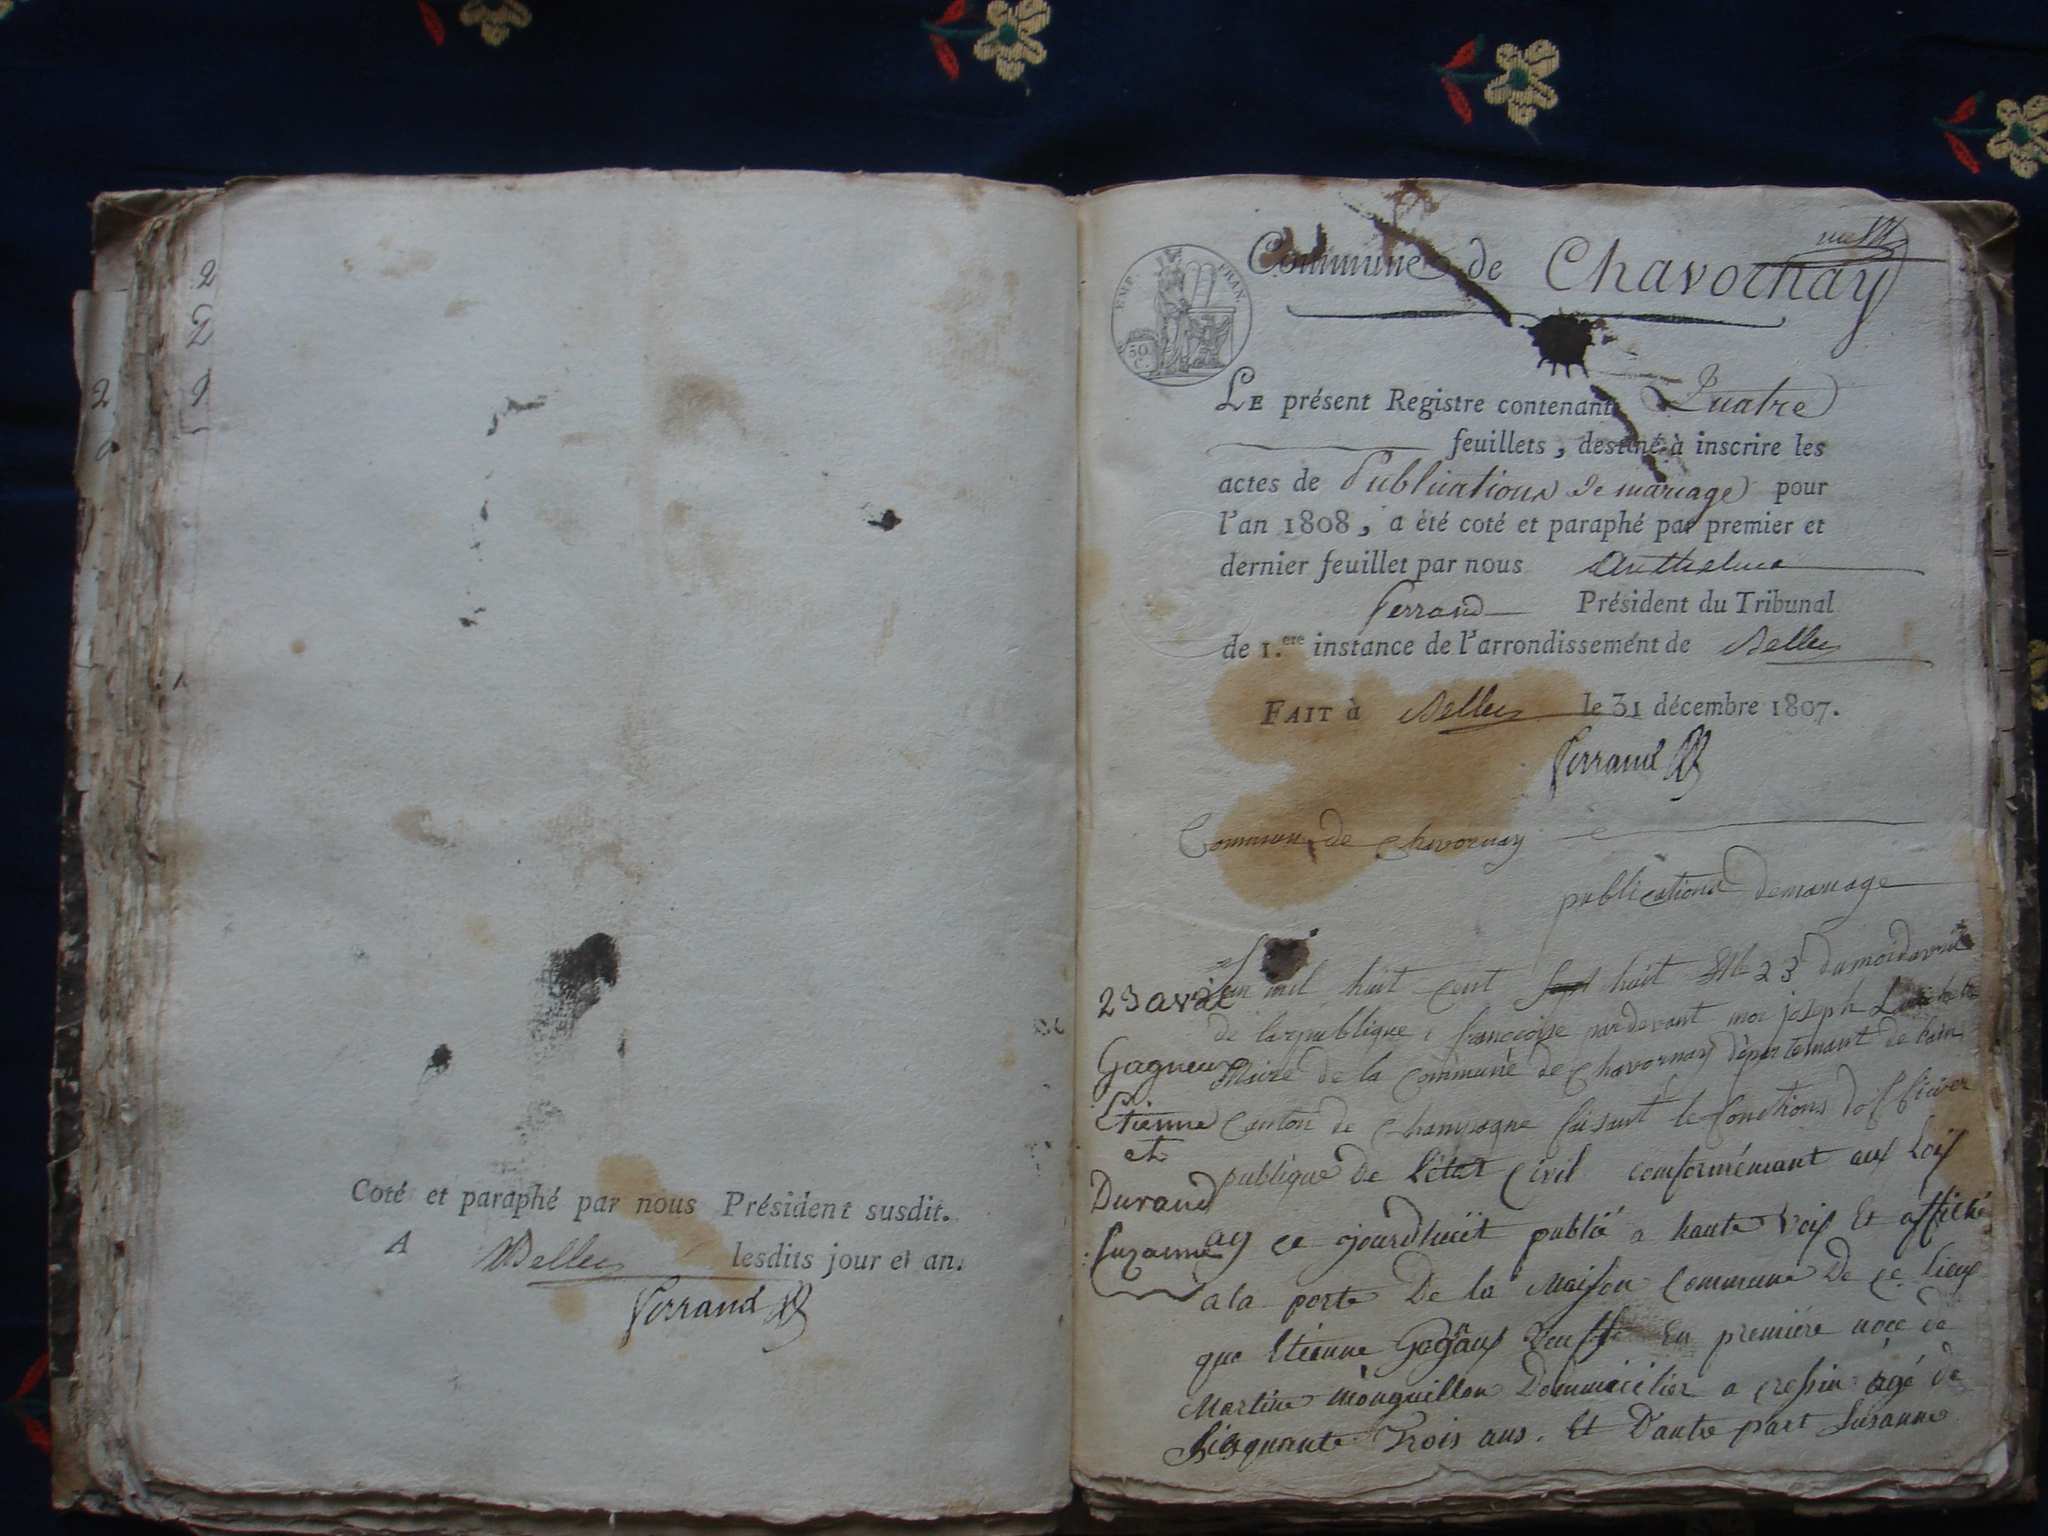 2
2
2
Coté et paraphé par nous Président susdit.
A Belley lesdits jour et an.
Ferrand
Commune de Chavornay
EMP. FRAN.
50 C.
LE présent Registre contenant Quatre
feuillets, destiné à inscrire les
actes de Publications de mariage pour
l'an 1808, a été coté et paraphé par premier et
dernier feuillet par nous Anthelme
Ferrand Président du Tribunal
de 1.ere instance de l'arrondissement de Belley
FAIT à Belley le 31 décembre 1807.
Ferrand
Commune de Chavornay
publications de mariage
23 avril
Gagneux
Etienne
et
Durand
Suzanne
Lan mil huit cent sept huit le 23 du moi davril
de la republique francoise pardevant moi joseph
Maire de la Commune de Chavornay département de lain
Canton de Champagne faisant le fonctions dofficier
publique de létat Civil conformémant aux Loix
ay ce jourdhuit publié a haute voix Et affiché
a la porte De la Maison Commune De ce lieux
que Etienne Gagnux veuff En première noce de
Martine monguillon Dommicilier a cressin agé de
Sinquante Trois ans. Et Dautre part Susanne